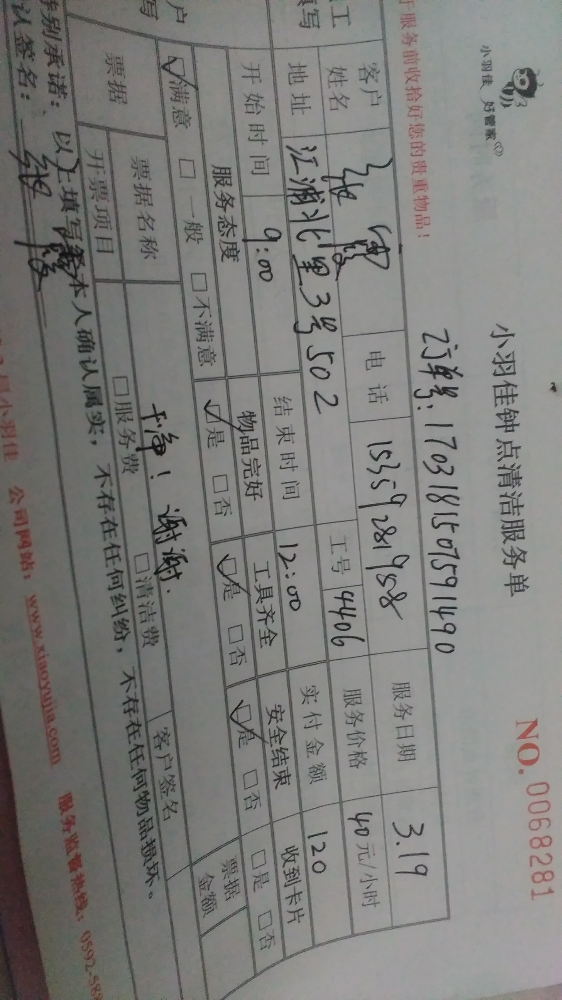 小羽佳 好管家
小羽佳钟点清洁服务单
NO. 0068281
于服务前收拾好您的贵重物品！
订单号：1703181507591490
客户姓名 电话 15359281958 服务日期 3.19
地址 江浦北里3号502 工号 4406 服务价格 40元/小时
开始时间 9:00 结束时间 12:00 实付金额 120
服务态度 物品完好 工具齐全 安全结束 收到卡片
☑满意 □一般 □不满意 ☑是 □否 ☑是 □否 ☑是 □否 □是 □否
干净！谢谢.
票据 票据名称 □服务费 □清洁费 票据金额
开票项目 客户签名
特别承诺：以上填写经本人确认属实，不存在任何纠纷，不存在任何物品损坏。
认签名：
小羽佳 公司网站：www.xiaoyujia.com 服务监督热线：0592-588